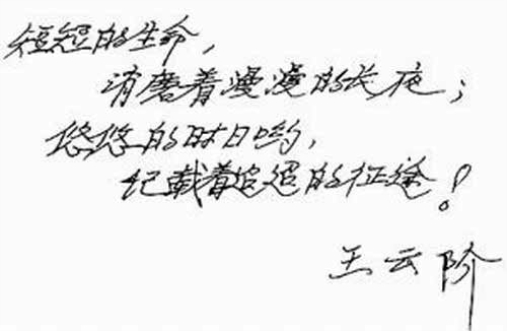 短短的生命，
消磨着漫漫的长夜；
悠悠的时日哟，
记载着迢迢的征途！
王云阶